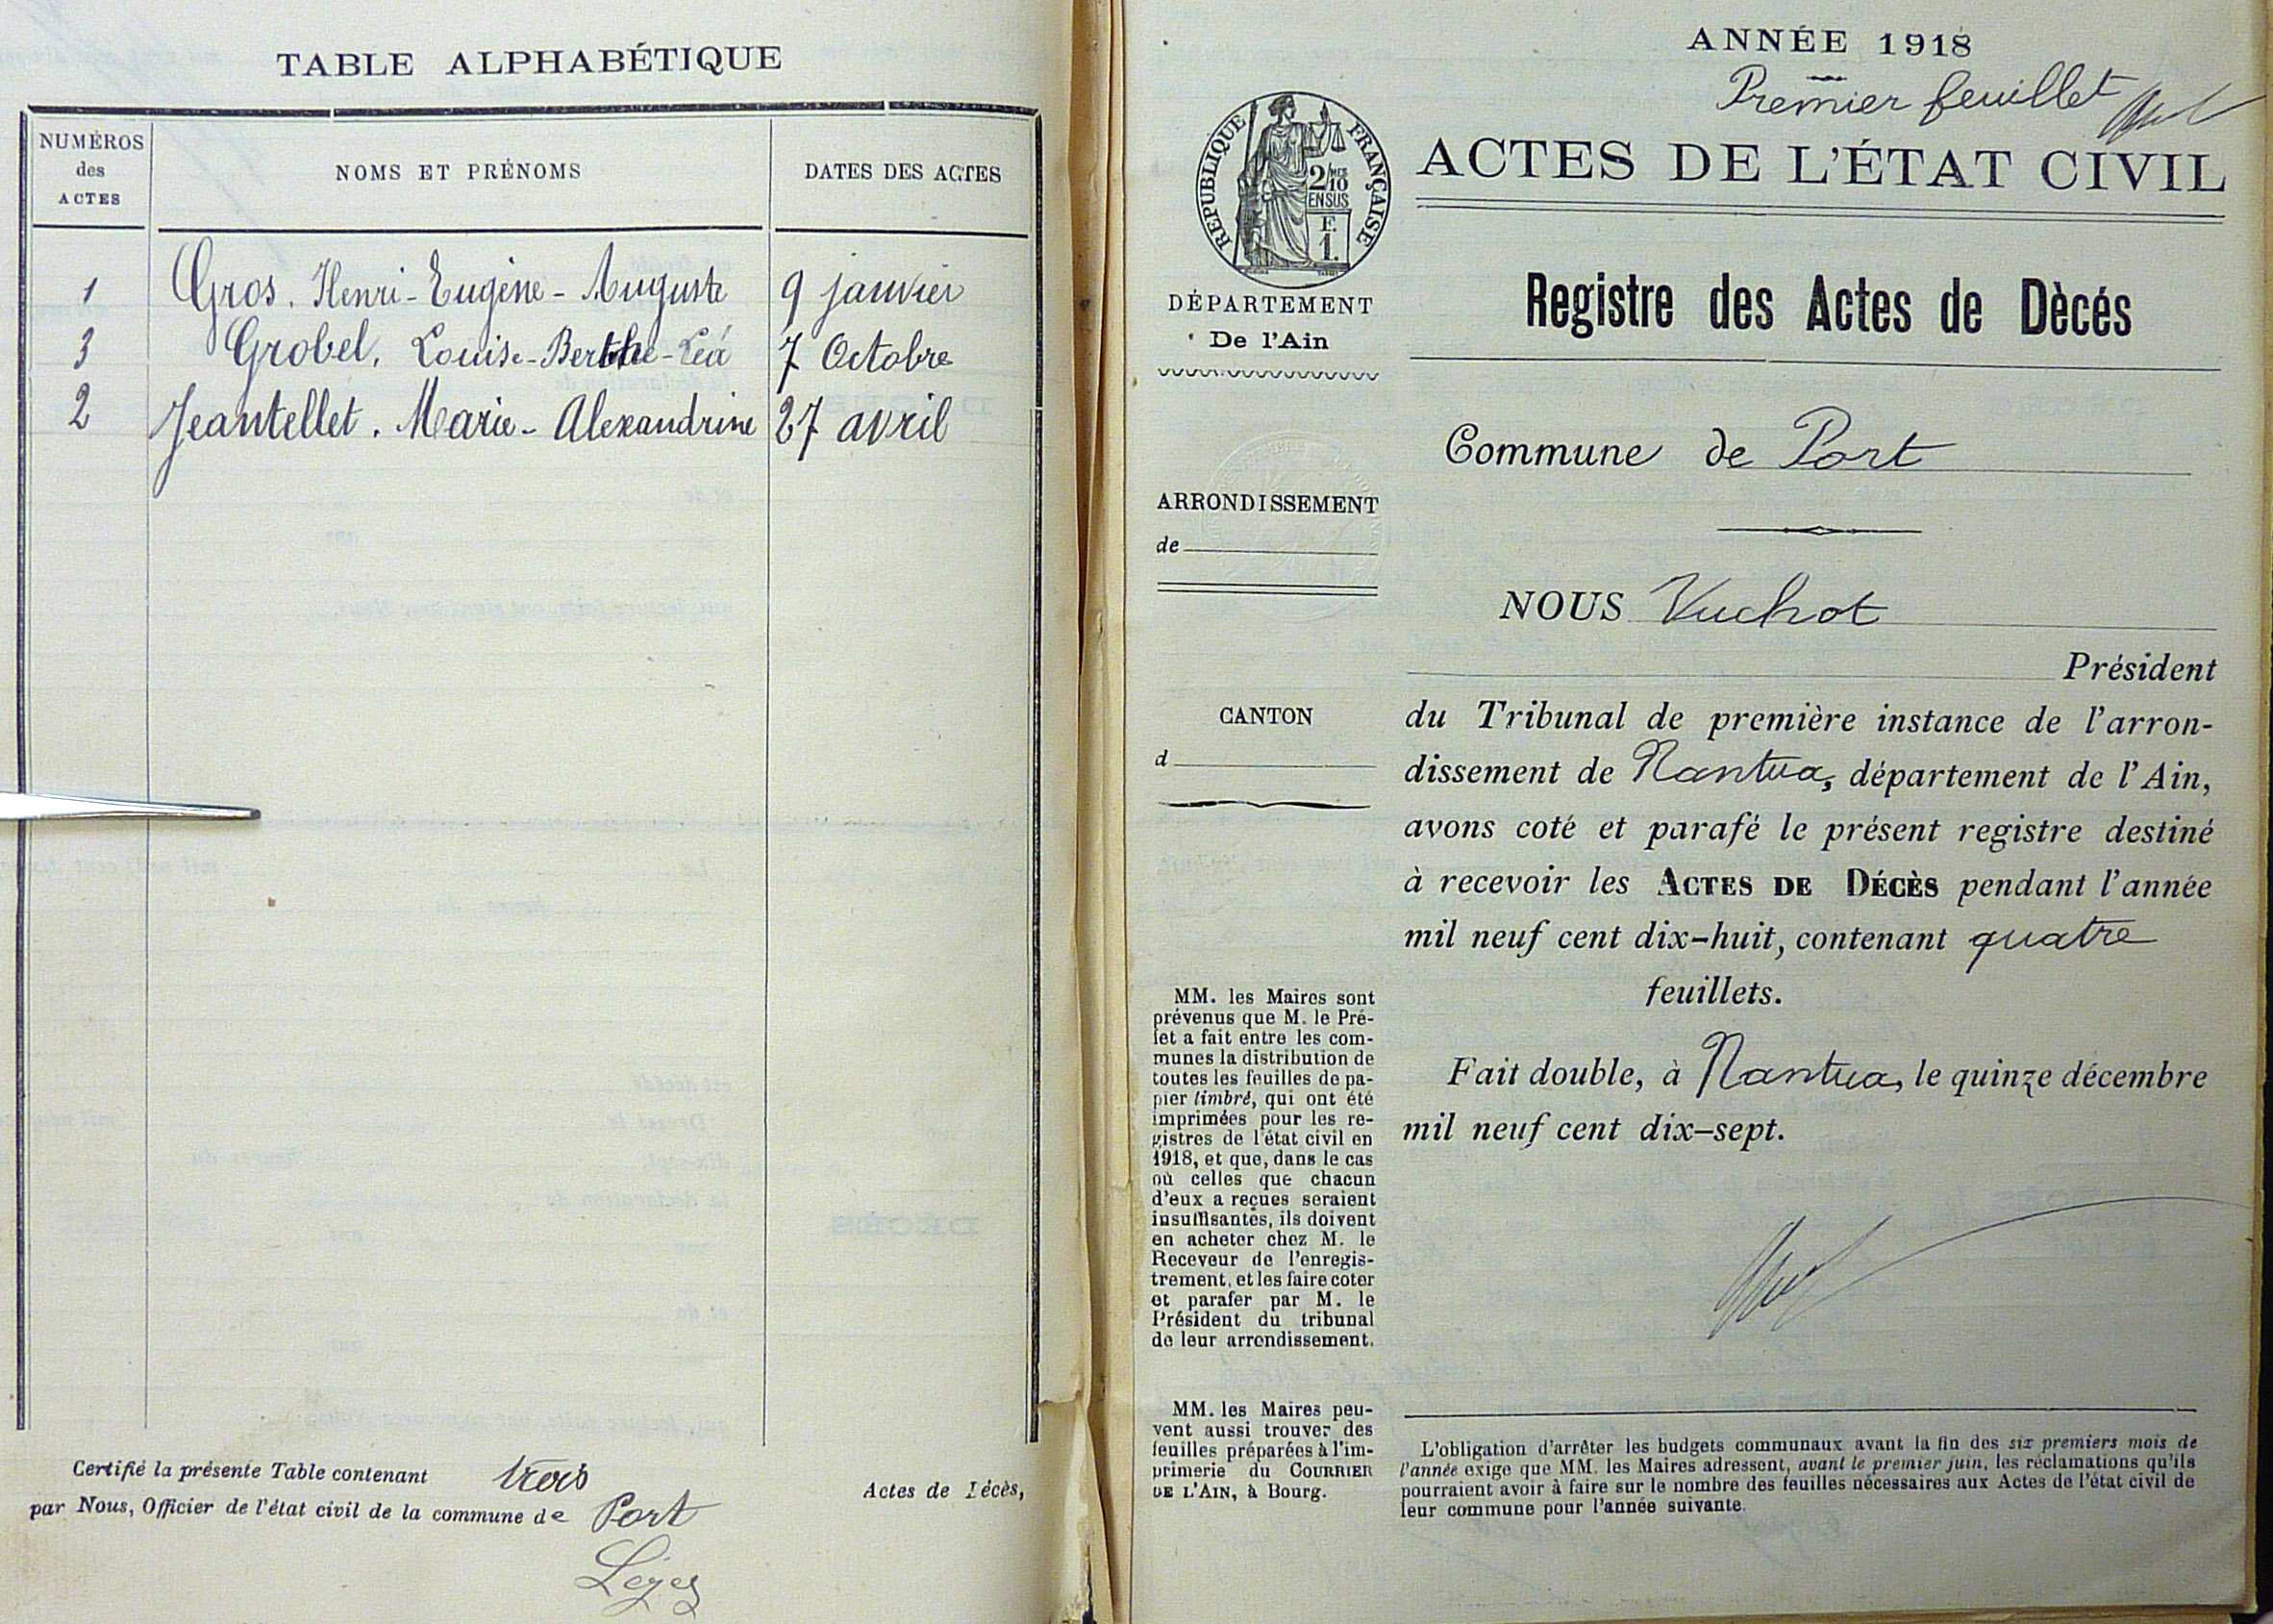 TABLE ALPHABÉTIQUE
NUMÉROS des ACTES
NOMS ET PRÉNOMS
DATES DES ACTES
1 Gros. Henri-Eugène-Auguste 9 janvier
3 Grobel. Louise-Berthe-Léa 7 Octobre
2 Jeantellet. Marie-Alexandrine 27 avril
Certifié la présente Table contenant trois Actes de Décès,
par Nous, Officier de l'état civil de la commune de Port
ANNÉE 1918
Premier feuillet
RÉPUBLIQUE FRANÇAISE
2/10MES
EN SUS
F.
1.
ACTES DE L'ÉTAT CIVIL
DÉPARTEMENT
De l'Ain
Registre des Actes de Dècés
Commune de Port
ARRONDISSEMENT
de
NOUS Vuchot
Président
CANTON
d
du Tribunal de première instance de l'arron-
dissement de Nantua, département de l'Ain,
avons coté et parafé le présent registre destiné
à recevoir les ACTES DE DÉCÈS pendant l'année
mil neuf cent dix-huit, contenant quatre
feuillets.
Fait double, à Nantua, le quinze décembre
mil neuf cent dix-sept.
MM. les Maires sont
prévenus que M. le Pré-
fet a fait entre les com-
munes la distribution de
toutes les feuilles de pa-
pier timbré, qui ont été
imprimées pour les re-
gistres de l'état civil en
1918, et que, dans le cas
où celles que chacun
d'eux a reçues seraient
insuffisantes, ils doivent
en acheter chez M. le
Receveur de l'enregis-
trement, et les faire coter
et parafer par M. le
Président du tribunal
de leur arrondissement.
MM. les Maires peu-
vent aussi trouver des
feuilles préparées à l'im-
primerie du COURRIER
DE L'AIN, à Bourg.
L'obligation d'arrêter les budgets communaux avant la fin des six premiers mois de
l'année exige que MM. les Maires adressent, avant le premier juin, les réclamations qu'ils
pourraient avoir à faire sur le nombre des feuilles nécessaires aux Actes de l'état civil de
leur commune pour l'année suivante.